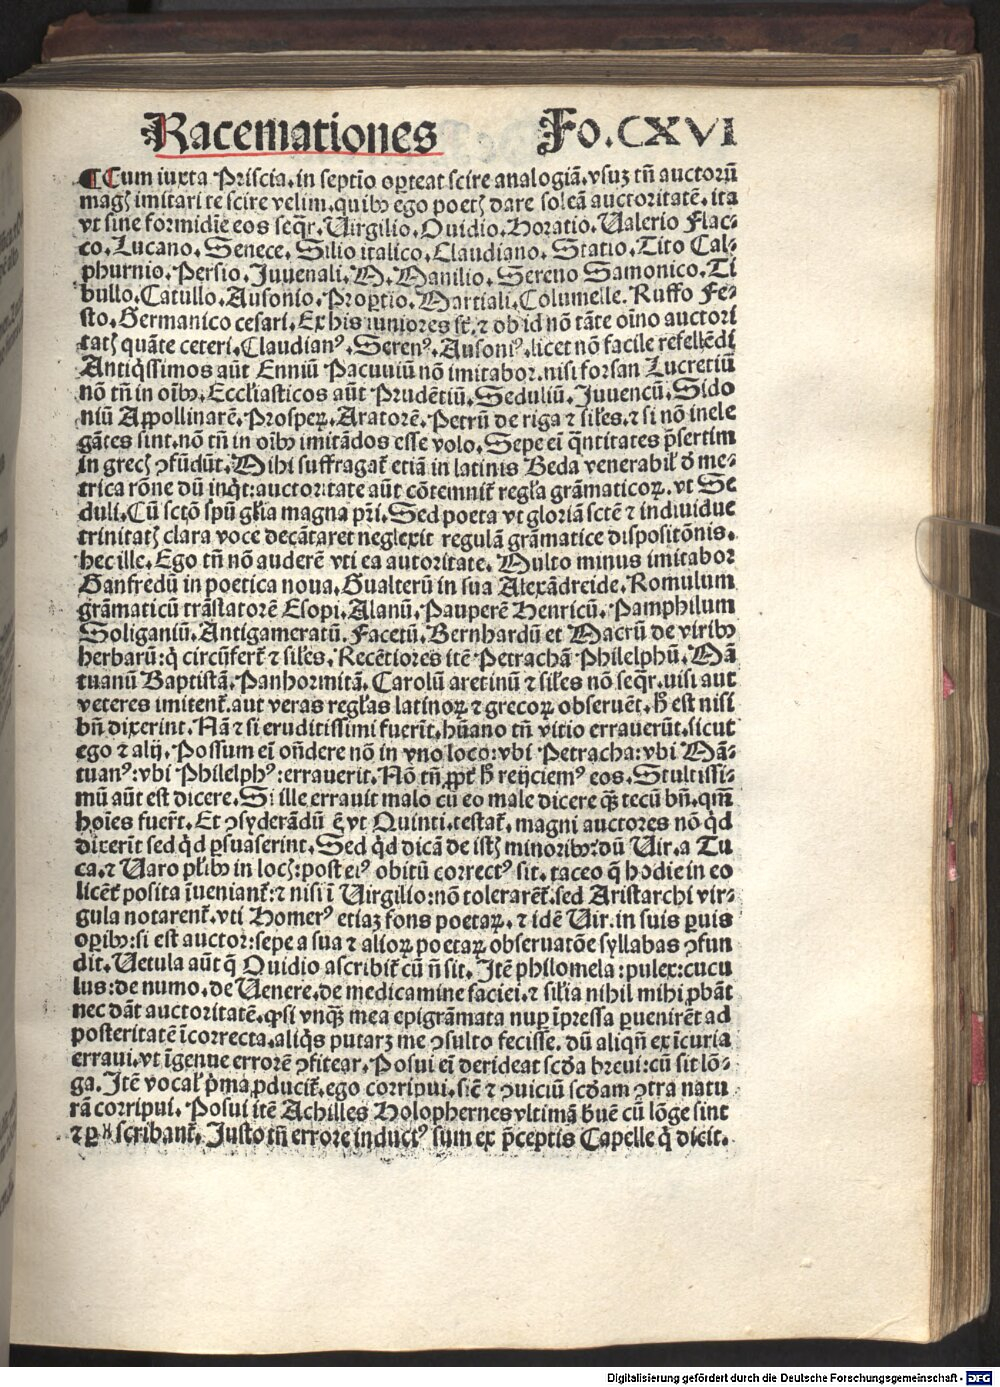 Racemationes Fo.CXVI
¶Cum iuxta Prisciā.in septīo oꝑteat scire analogiā.vsuꝫ tñ auctoꝝ
magꝭ imitari te scire velim.quibꝰ ego poetꝭ dare soleā auctoritatē.ita
vt sine formidīe eos seq̄r.Uirgilio.Ouidio.Horatio.Ualerio Flac⸗
co.Lucano.Senece.Silio italico.Claudiano.Statio.Tito Cal⸗
phurnio.Persio.Juuenali.M.Manilio.Sereno Samonico.Ti
bullo.Catullo.Ausonio.Proꝑtio.Martiali.Columelle.Ruffo Fe⸗
sto.Germanico cesari.Ex his iuniores st̄.⁊ ob id nō tāte oīno auctori
tatꝭ quāte ceteri.Claudianꝰ.Serenꝰ.Ausoniꝰ.licet nō facile refellēdi
Antiq̇ssimos aūt Enniū Pacuuiū nō imitabor.nisi forsan Lucretiū
nō tñ in oībꝰ.Eccl'iasticos aūt Prudētiū.Seduliū.Juuencū.Sido
niū Appollinarē.Prosperꝝ.Aratorē.Petrū de riga ⁊ sil'es.⁊ si nō inele
gātes sint.nō tñ in oībꝰ imitādos esse volo.Sepe eī q̄ntitates p̄sertim
in grecꝭ ꝯfūdūt.Mihi suffragat᷑ etiā in latinis Beda venerabil' de me⸗
trica rōne dū inq̇t:auctoritate aūt cōtemnit᷑ regl'a grāmaticoꝝ.vt Se
duli.Cū sctō spū gl'ia magna pr̄i.Sed poeta vt gloriā scte ⁊ indiuidue
trinitatꝭ clara voce decātaret neglexit regulā grāmatice dispositōnis.
hec ille.Ego tñ nō auderē vti ea autoritate.Multo minus imitabor
Ganfredū in poetica noua.Gualterū in sua Alexādreide.Romulum
grāmaticū trāstatorē Esopi.Alanū.Pauperē Henricū.Pamphilum
Soliganiū.Antigameratū.Facetū.Bernhardū et Macrū de viribꝰ
herbarū:q̇ circūfert᷑ ⁊ sil'es.Recētiores itē Petrachā Philelphū.Mā
tuanū Baptistā.Panhormitā.Carolū aretinū ⁊ sil'es nō seq̄r.uisi aut
veteres imitent᷑.aut veras regl'as latinoꝝ ⁊ grecoꝝ obseruēt.hͦ est nisi
bñ dixerint.Nā ⁊ si eruditissimi fuerīt.hūano tñ vitio errauerūt.sicut
ego ⁊ alij.Possum eī oñdere nō in vno loco:vbi Petracha:vbi Mā⸗
tuanꝰ:vbi Philelphꝰ:errauerit.Nō tñ ꝓpt᷑ hͦ reijciemꝰ eos.Stultissi⸗
mū aūt est dicere.Si ille errauit malo cū eo male dicere q̄ꝫ tecū bñ.qm̄
hoīes fuer̄t.Et ꝯsyderādū ē vt Quinti.testat᷑.magni auctores nō q̇d
dixerīt sed q̇d ꝑsuaserint.Sed q̇d dicā de istꝭ minoribꝰ:dū Uir.a Tu
ca.⁊ Uaro pl'ibꝰ in locꝭ:post eiꝰ obitū correctꝰ sit.taceo q̇ hodie in eo
licent᷑ posita īueniant᷑:⁊ nisi ī Uirgilio:nō tolerarēt᷑.sed Aristarchi vir⸗
gula notarent᷑.vti Homerꝰ etiaꝫ fons poetaꝝ.⁊ idē Uir.in suis ꝑuis
oꝑibꝰ:si est auctor:sepe a sua ⁊ alioꝝ poetaꝝ obseruatōe syllabas ꝯfun
dit.Uetula aūt q̄ Ouidio ascribit᷑ cū ñ sit.Itē philomela:pulex:cucu
lus:de numo.de Uenere.de medicamine faciei.⁊ sil'ia nihil mihi ꝓbāt
nec dāt auctoritatē.qͦsi vnq̄ꝫ mea epigrāmata nuꝑ īpressa ꝑuenirēt ad
posteritatē īcorrecta.aliq̇s putarꝫ me ꝯsulto fecisse.dū aliqñ ex īcuria
erraui.vt īgenue errorē ꝯfitear.Posui eī derideat scd̄a breui:cū sit lō⸗
ga.Itē vocal' p̄ma ꝓducit᷑.ego corripui.sic̄ ⁊ ꝯuiciū scd̄am ꝯtra natu
rā corripui.Posui itē Achilles Holophernes vltimā breuē cū lōge sint
⁊ ꝑ scribant᷑.Justo tñ errore inductꝰ sum ex p̄ceptis Capelle q̇ dicit.
Digitalisierung gefördert durch die Deutsche Forschungsgemeinschaft - DFG